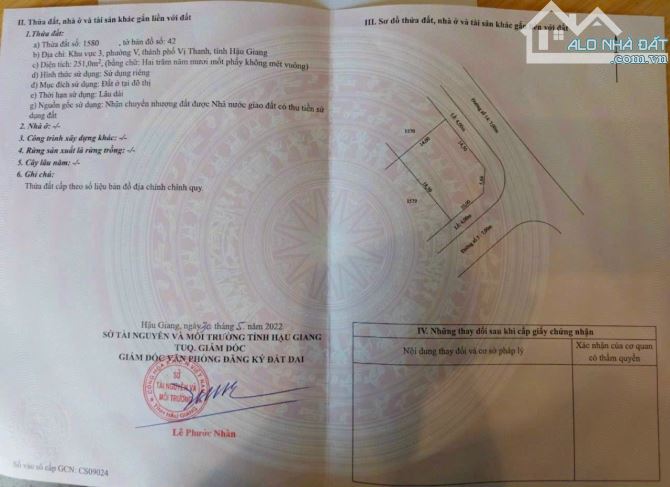 II. Thửa đất, nhà ở và tài sản khác gắn liền với đất
1.Thửa đất:
a) Thửa đất số: 1580 , tờ bản đồ số: 42
b) Địa chỉ: Khu vực 3, phường V, thành phố Vị Thanh, tỉnh Hậu Giang
c) Diện tích: 251,0m², (bằng chữ: Hai trăm năm mươi mốt phẩy không mét vuông)
d) Hình thức sử dụng: Sử dụng riêng
đ) Mục đích sử dụng: Đất ở tại đô thị
e) Thời hạn sử dụng: Lâu dài
g) Nguồn gốc sử dụng: Nhận chuyển nhượng đất được Nhà nước giao đất có thu tiền sử
dụng đất
2. Nhà ở: -/-
3. Công trình xây dựng khác: -/-
4. Rừng sản xuất là rừng trồng: -/-
5. Cây lâu năm: -/-
6. Ghi chú:
Thửa đất cấp theo số liệu bản đồ địa chính chính quy.
Hậu Giang, ngày 30 tháng 5 năm 2022
SỞ TÀI NGUYÊN VÀ MÔI TRƯỜNG TỈNH HẬU GIANG
TUQ. GIÁM ĐỐC
GIÁM ĐỐC VĂN PHÒNG ĐĂNG KÝ ĐẤT ĐAI
CỘNG HÒA
VIỆT NAM
SỞ
TÀI NGUYÊN VÀ
MÔI TRƯỜNG
TỈNH HẬU GIANG
Lê Phước Nhẫn
Số vào sổ cấp GCN: CS09024
III. Sơ đồ thửa đất, nhà ở và tài sản khác gắn liền với đất
ALO NHÀ ĐẤT
Đường số 14: 7,00m
Lề: 4,00m
1570
14,00
14,50
18,50
5,66
1579
10,00
Lề: 4,00m
Đường số 1: 7,00m
IV. Những thay đổi sau khi cấp giấy chứng nhận
Nội dung thay đổi và cơ sở pháp lý
Xác nhận của cơ quan
có thẩm quyền